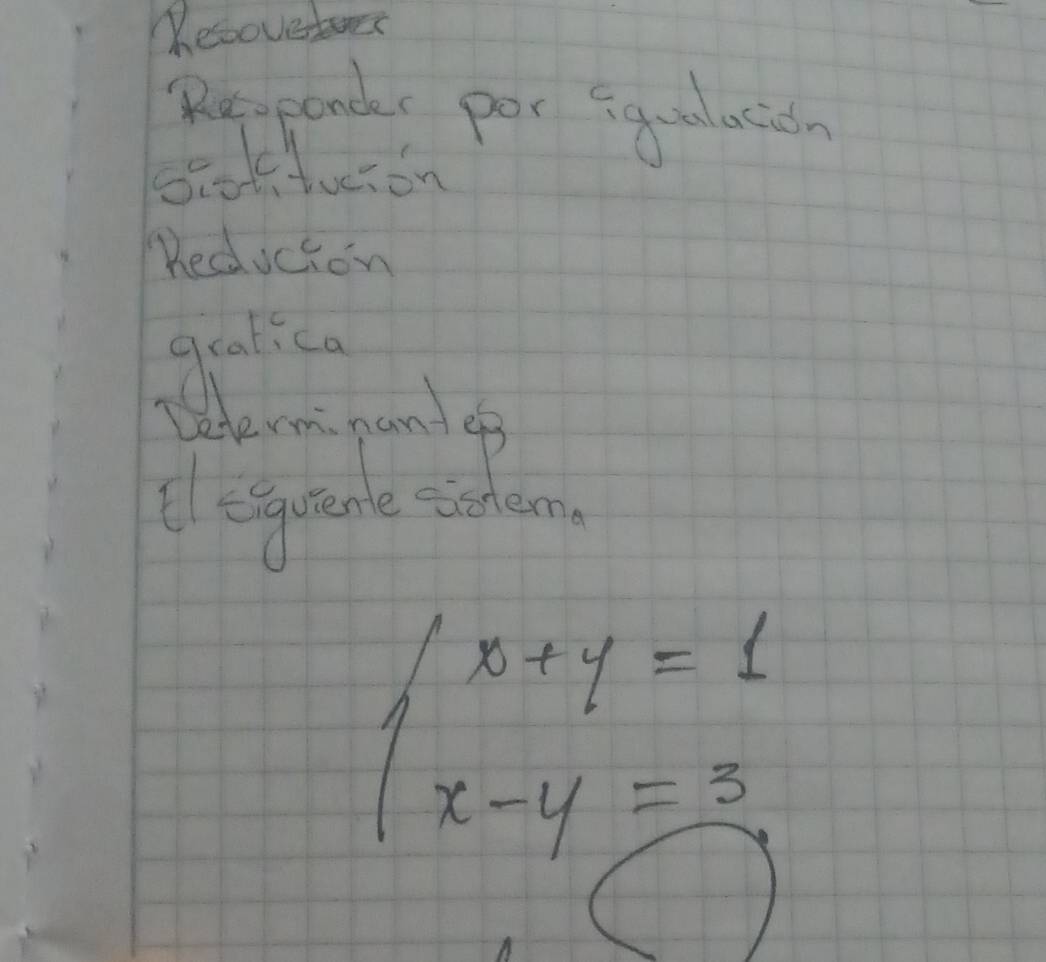 Responder por igualación
Sistitución
Redución
grafica
Determinantes
El siguiente sistema
x + y = 1
x - y = 3